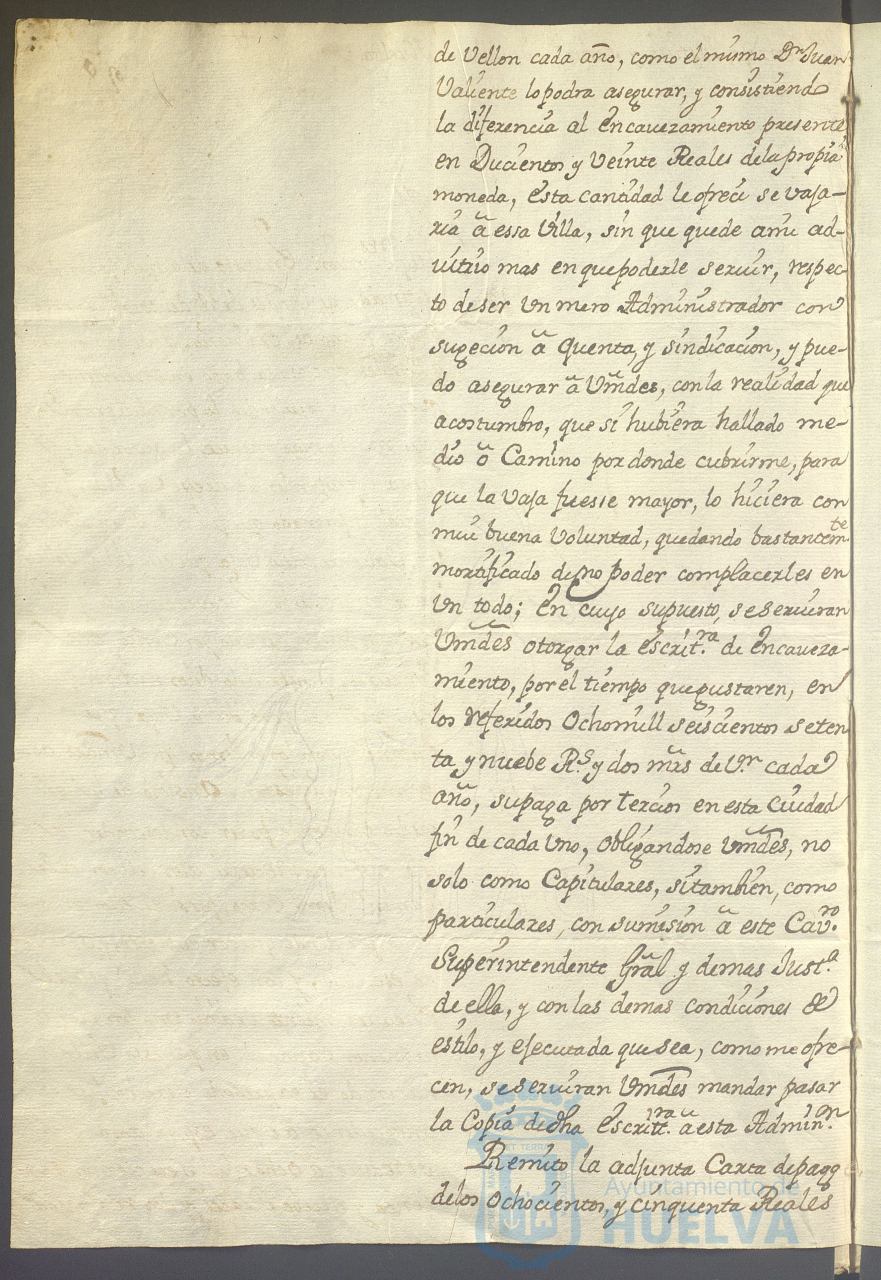 de Vellon cada año, como el mismo Dn. Juan
Valiente lo podra asegurar, y consistiendo
la diferencia al Encavezamiento presente
en Ducientos y Veinte Reales de la propia
moneda, esta cantidad le ofreci se vaja-
ria â essa Villa, sin que quede a mi ad-
vitrio mas en que poderle servir, respec-
to de ser Un mero Administrador con
sugecion â Quenta, y sindicacion, y pue-
do asegurar â Vmdes, con la realidad que
acostumbro, que si hubiera hallado me-
dio ô Camino por donde cubrirme, para
que la vaja fuesse mayor, lo hiciera con
mui buena Voluntad, quedando bastantemte.
mortificado de no poder complacerles en
Un todo; En cuyo supuesto, se serviran
Vmdes otorgar la escritra. de Encaveza-
miento, por el tiempo que gustaren, en
los referidos Ochomill seiscientos seten
ta y nuebe Rs. y dos mrs de Vn. cada
año, su paga por tercios en esta Ciudad
fin de cada Uno, obligandose Vmdes, no
solo como Capitulares, si tambien, como
particulares, con sumision â este Cavro.
Superintendente Gral y demas Justa.
de ella, y con las demas condiciones de
estilo, y ejecutada que sea, como me ofre-
cen, se serviran Vmdes mandar pasar
la Copia de dha Escritra. â esta Adminon.
Remito la adjunta Carta de pago
de los Ochocientos, y cinquenta Reales
Ayuntamiento de
HUELVA